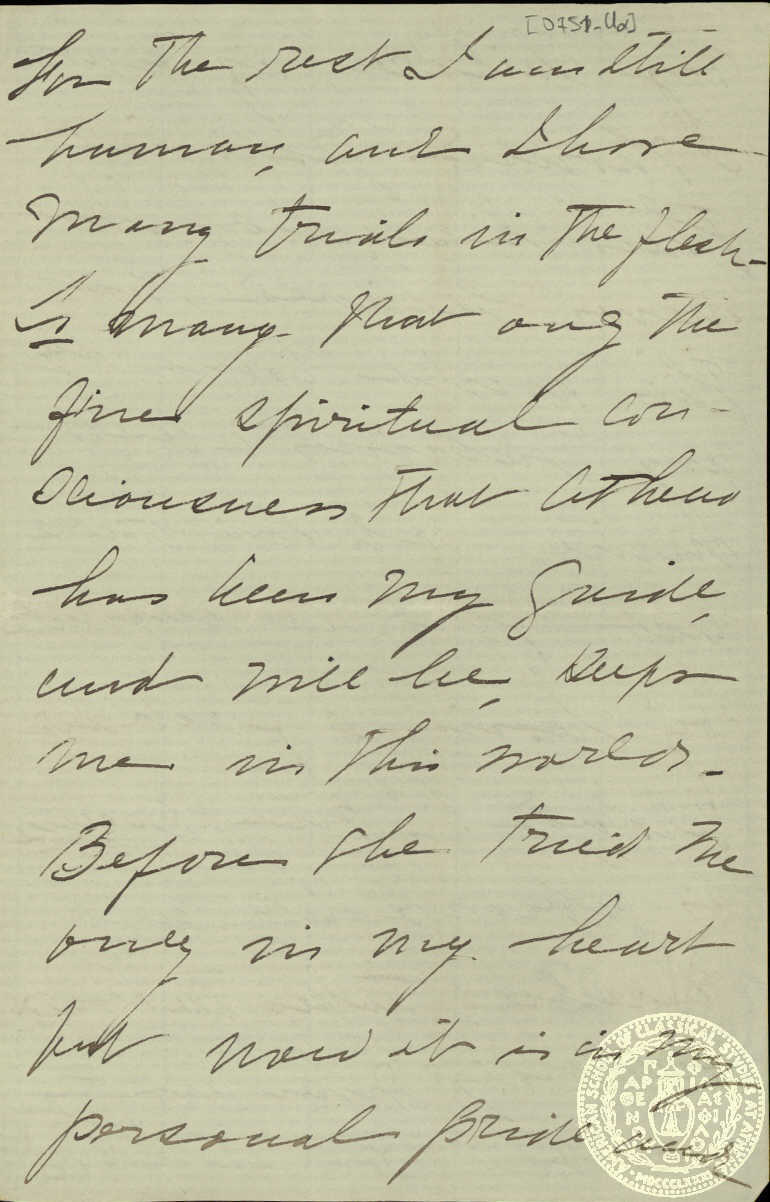 [0751-Ud]
For the rest I am still
human, and I have
many trials in the flesh-
So many- that only the
finer spiritual con-
sciousness that Athena
has been my guide,
and will be, keeps
me in this world.-
Before she tried me
only in my heart
but now it is in my
personal pride and
AMERICAN SCHOOL OF CLASSICAL STUDIES AT ATHENS
ΠΑΡΘΕΝ
ΦΙΑΣ ΦΙΛ
MDCCCLXXXI